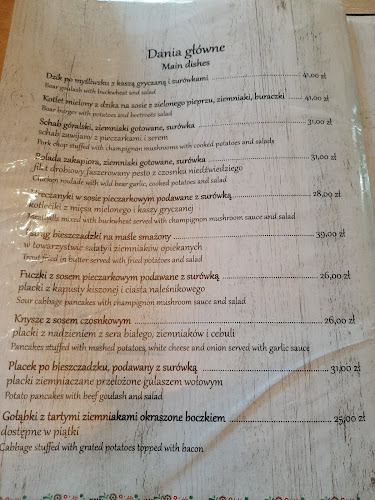 Dania główne
Main dishes
Dzik po myśliwsku z kaszą gryczaną i surówkami 41,00 zł
Boar goulash with buckwheat and salad
Kotlet mielony z dzika na sosie z zielonego pieprzu, ziemniaki, buraczki 41,00 zł
Boar burger with potatoes and beetroots salad
Schab góralski, ziemniaki gotowane, surówka 31,00 zł
schab zawijany z pieczarkami i serem
Pork chop stuffed with champignon mushrooms with cooked potatoes and salads
Rolada zakapiora, ziemniaki gotowane, surówka 31,00 zł
filet drobiowy faszerowany pesto z czosnku niedźwiedziego
Chicken roulade with wild bear garlic, cooked potatoes and salad
w sosie pieczarkowym podawane z surówką 28,00 zł
kotleciki z mięsa mielonego i kaszy gryczanej
Meatballs mixed with buckwheat served with champignon mushroom sauce and salad
Pstrąg bieszczadzki na maśle smażony 39,00 zł
w towarzystwie sałaty i ziemniaków opiekanych
Trout fried in butter served with fried potatoes and salad
Fuczki z sosem pieczarkowym podawane z surówką 26,00 zł
placki z kapusty kiszonej i ciasta naleśnikowego
Sour cabbage pancakes with champignon mushroom sauce and salad
Knysze z sosem czosnkowym 26,00 zł
placki z nadzieniem z sera białego, ziemniaków i cebuli
Pancakes stuffed with mashed potatoes, white cheese and onion served with garlic sauce
Placek po bieszczadzku, podawany z surówką 31,00 zł
placki ziemniaczane przełożone gulaszem wołowym
Potato pancakes with beef goulash and salad
Gołąbki z tartymi ziemniakami okraszone boczkiem 25,00 zł
dostępne w piątki
Cabbage stuffed with grated potatoes topped with bacon